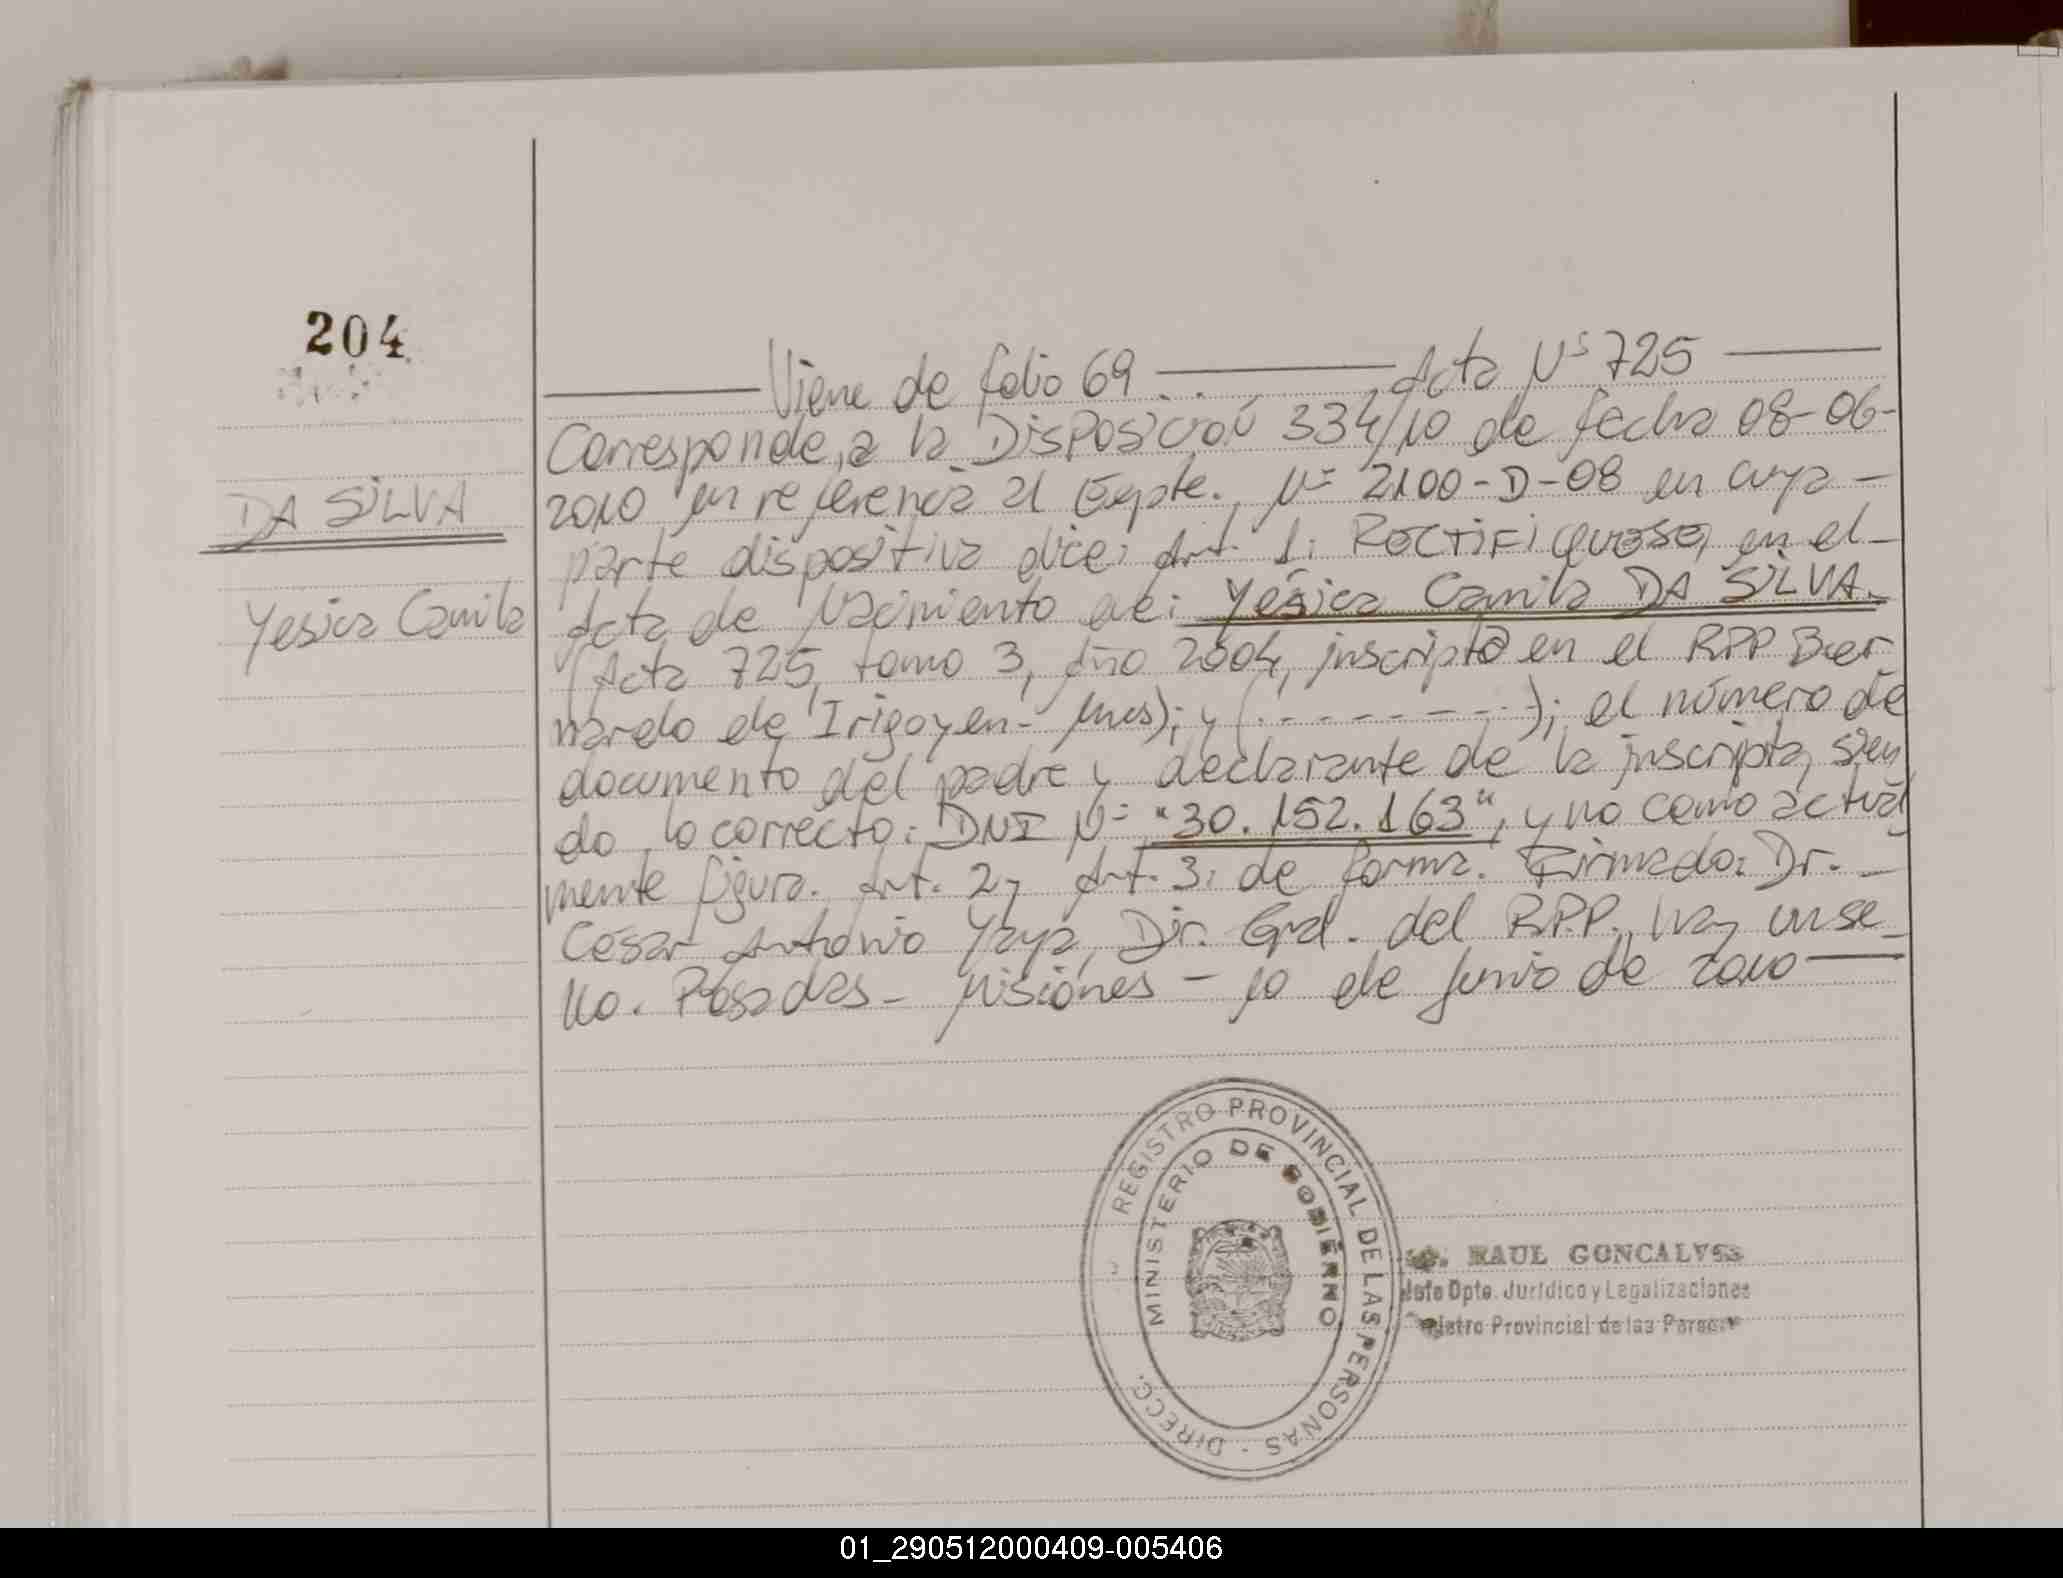 204
DA SILVA
Yesica Camila
Viene de folio 69 Acta Nº 725
Corresponde a la Disposición 334/10 de fecha 08-06-
2010 en referencia al Expte. Nº 2100-D-08 en cuya -
parte dispositiva dice: Art. 1: RECTIFIQUESE, en el -
Acta de Nacimiento de: Yésica Camila DA SILVA.-
(Acta 725, tomo 3, Año 2004, inscripta en el RPP Ber
nardo de Irigoyen- Mnes); y (---------); el número de
documento del padre y declarante de la inscripta, sien
do lo correcto: DNI Nº "30.152.163", y no como actual
mente figura. Art. 2 y Art. 3: de forma. Firmado: Dr. -
César Antonio Yaya, Dir. Gral. del R.P.P. hay un se_
llo. Posadas - Misiones - 10 de Junio de 2010
DIRECC. REGISTRO PROVINCIAL DE LAS PERSONAS -
MINISTERIO DE GOBIERNO
RAUL GONCALVES
Jefe Dpto. Jurídico y Legalizaciones
Provincial de las
01_290512000409-005406